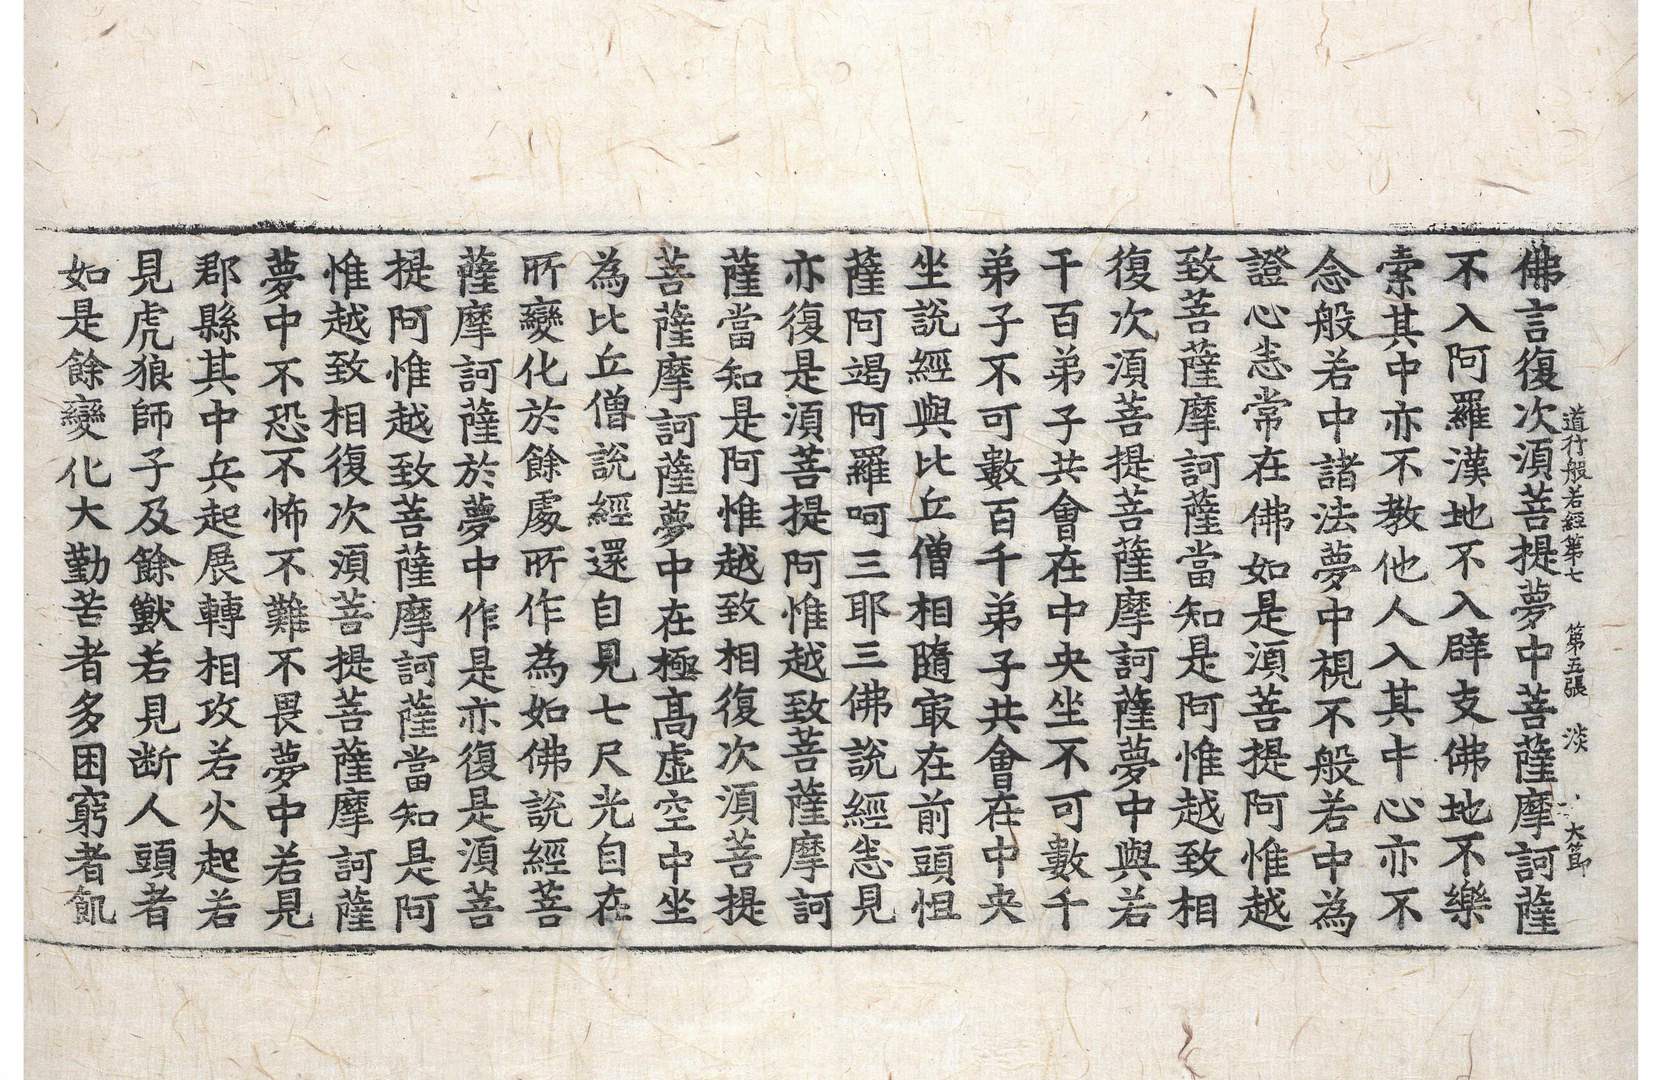 道行般若經第七 第五張 淡 大節
佛言復次須菩提夢中菩薩摩訶薩
不入阿羅漢地不入辟支佛地不樂
索其中亦不教他人入其中心亦不
念般若中諸法夢中視不般若中為
證心恚常在佛如是須菩提阿惟越
致菩薩摩訶薩當知是阿惟越致相
復次須菩提菩薩摩訶薩夢中與若
千百弟子共會在中央坐不可數千
弟子不可數百千弟子共會在中央
坐說經與比丘僧相隨㝡在前頭怛
薩阿竭阿羅呵三耶三佛說經悉見
亦復是須菩提阿惟越致菩薩摩訶
薩當知是阿惟越致相復次須菩提
菩薩摩訶薩夢中在極高虛空中坐
為比丘僧說經還自見七尺光自在
所變化於餘處所作為如佛說經菩
薩摩訶薩於夢中作是亦復是須菩
提阿惟越致菩薩摩訶薩當知是阿
惟越致相復次須菩提菩薩摩訶薩
夢中不恐不怖不難不畏夢中若見
郡縣其中兵起展轉相攻若火起若
見虎狼師子及餘獸若見断人頭者
如是餘變化大勤苦者多困窮者飢